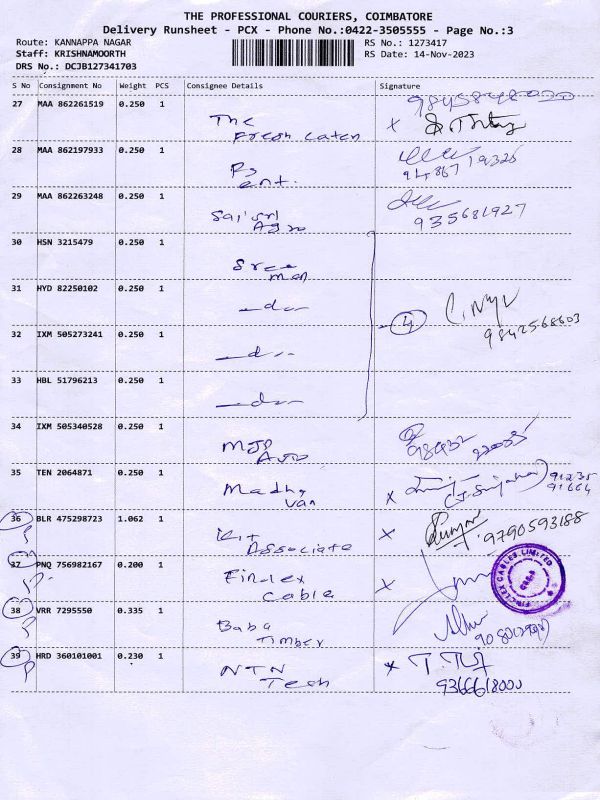 THE PROFESSIONAL COURIERS, COIMBATORE
Delivery Runsheet - PCX - Phone No.:0422-3505555 - Page No.:3
Route: KANNAPPA NAGAR RS No.: 1273417
Staff: KRISHNAMOORTH RS Date: 14-Nov-2023
DRS No.: DCJB127341703
S No Consignment No Weight PCS Consignee Details Signature
27 MAA 862261519 0.250 1
The
Fresh
28 MAA 862197933 0.250 1
Rs
ent.
29 MAA 862263248 0.250 1
935681927
Sai Sri
Agro
30 HSN 3215479 0.250 1
Sree
man
31 HYD 82250102 0.250 1
do
4
9842568603
32 IXM 505273241 0.250 1
do
33 HBL 51796213 0.250 1
do
34 IXM 505340528 0.250 1
35 TEN 2064871 0.250 1
Madha
van
x
36 BLR 475298723 1.062 1
x
Kumar
9790593188
Associate
37 PNQ 756982167 0.200 1
Finolex
cable
x
FINOLEX CABLES LIMITED
38 VRR 7295550 0.335 1
Baba
Timber
39 HRD 360101001 0.230 1
NTN
Tech
x
9366618000